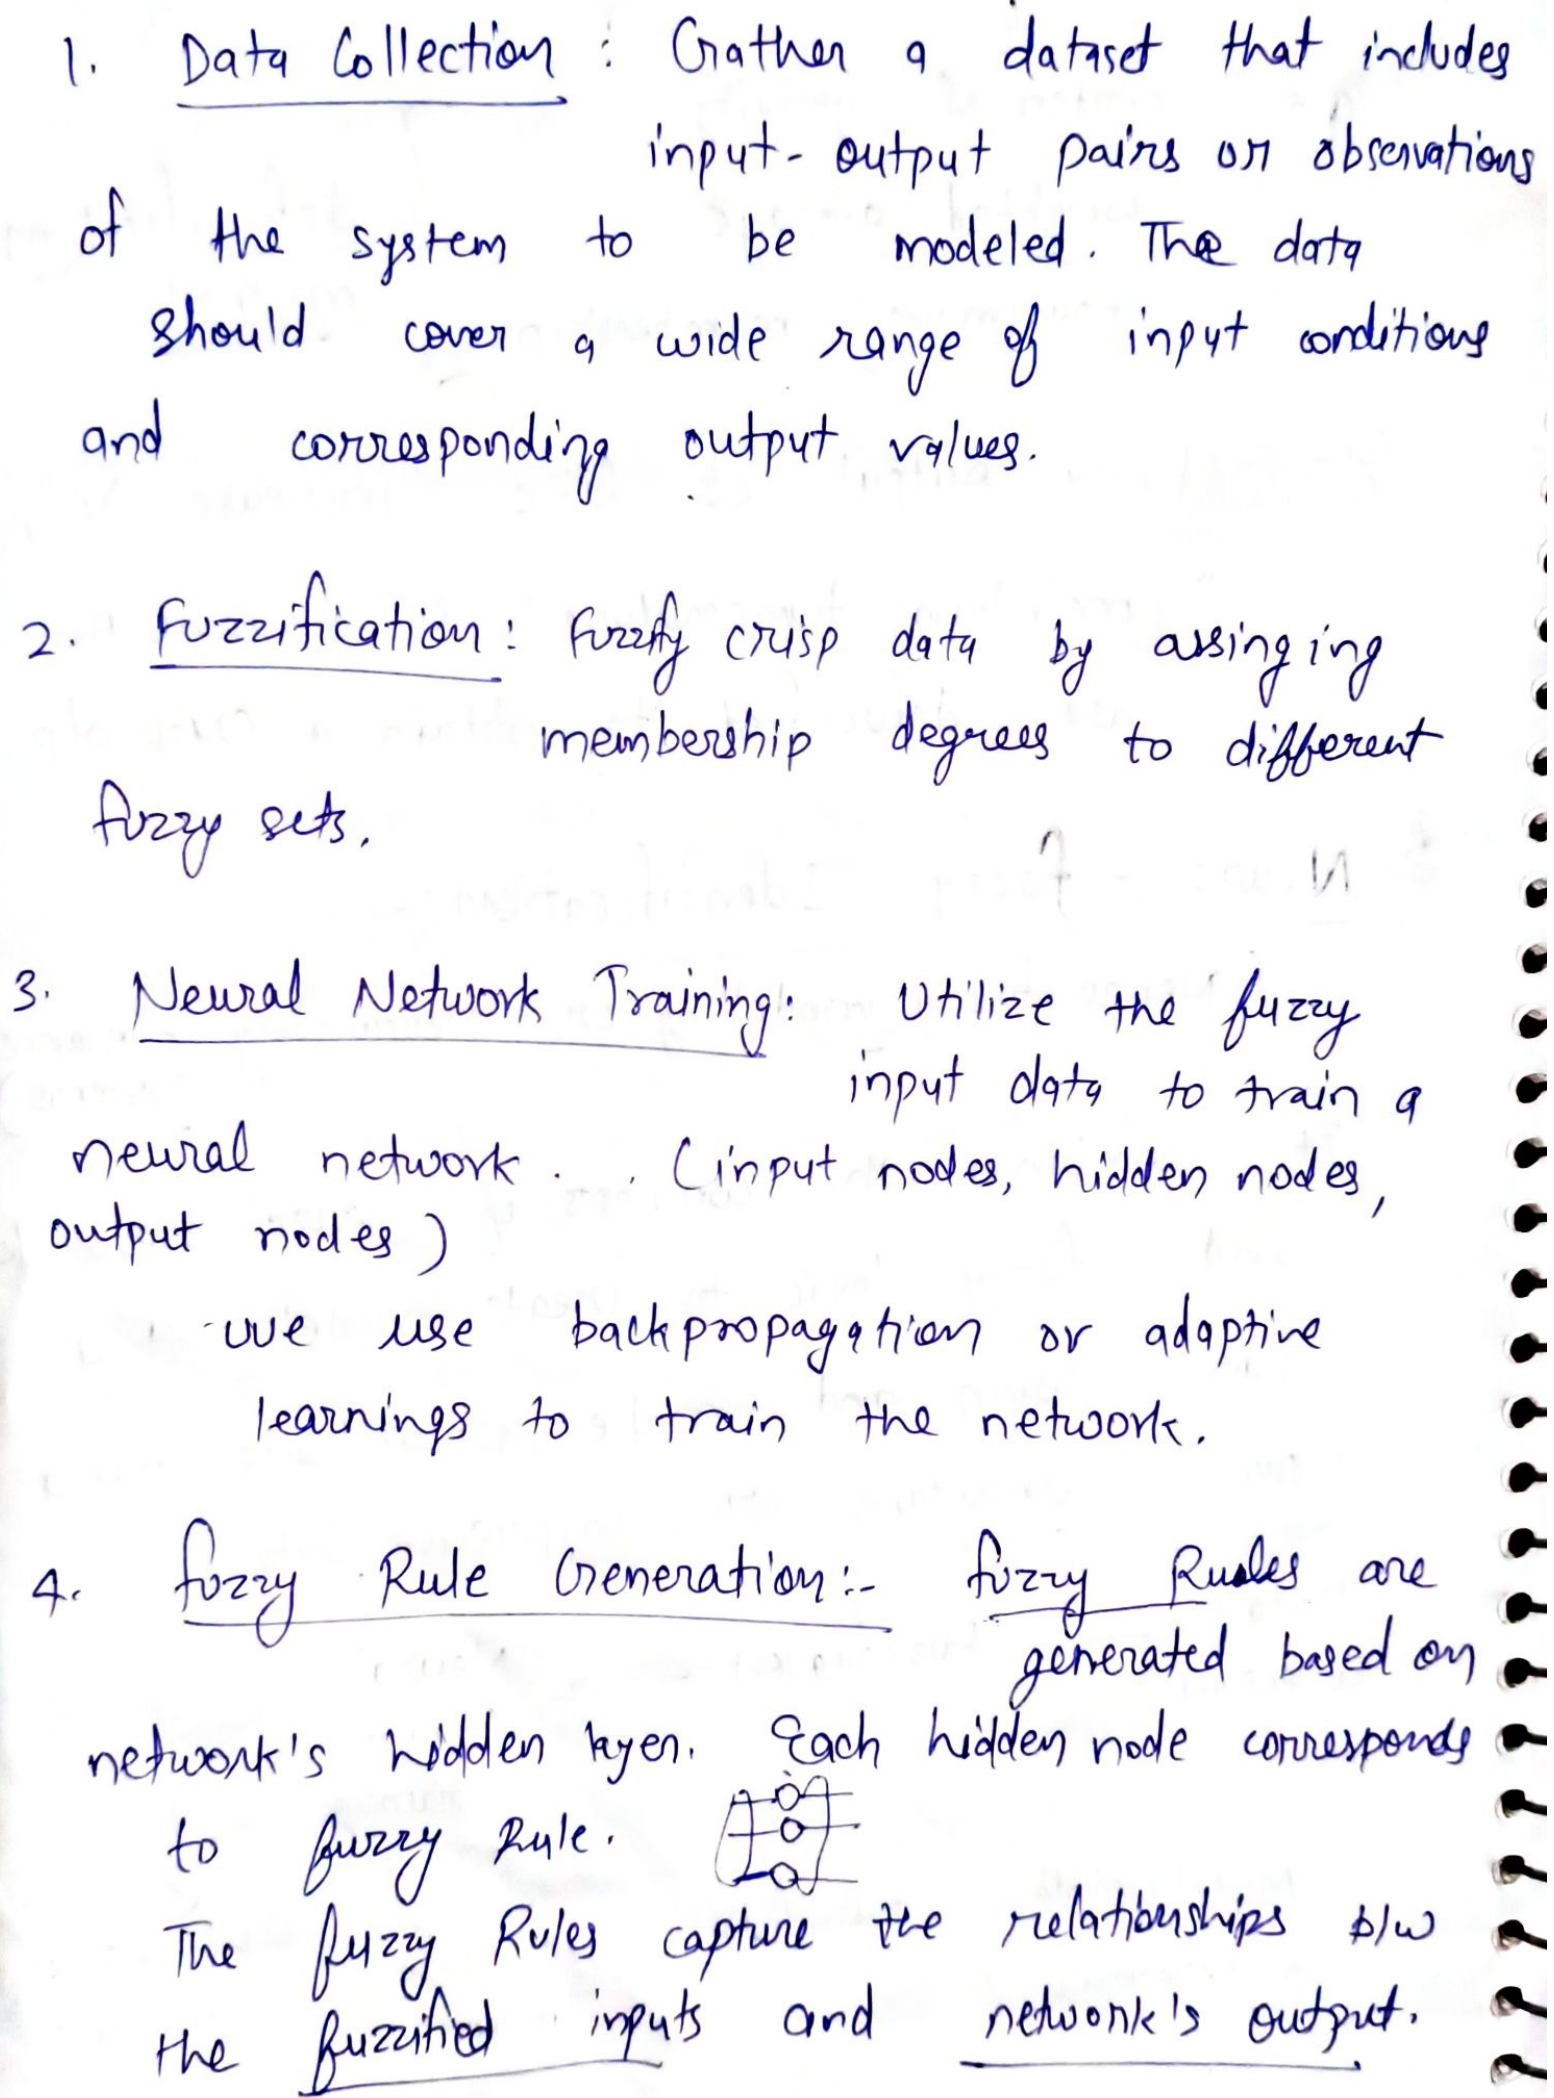 1. Data Collection : Gather a dataset that includes
input-output pairs or observations
of the system to be modeled. The data
should cover a wide range of input conditions
and corresponding output values.
2. Fuzzification : Fuzzify crisp data by assinging
membership degrees to different
fuzzy sets.
3. Neural Network Training: Utilize the fuzzy
input data to train a
neural network. . (input nodes, hidden nodes,
output nodes)
-we use backpropagation or adaptive
learnings to train the network.
4. fuzzy Rule Generation:- fuzzy Rules are
generated based on
network's hidden layer. Each hidden node corresponds
to fuzzy Rule.
The fuzzy Rules capture the relationships b/w
the fuzzified inputs and network's output.